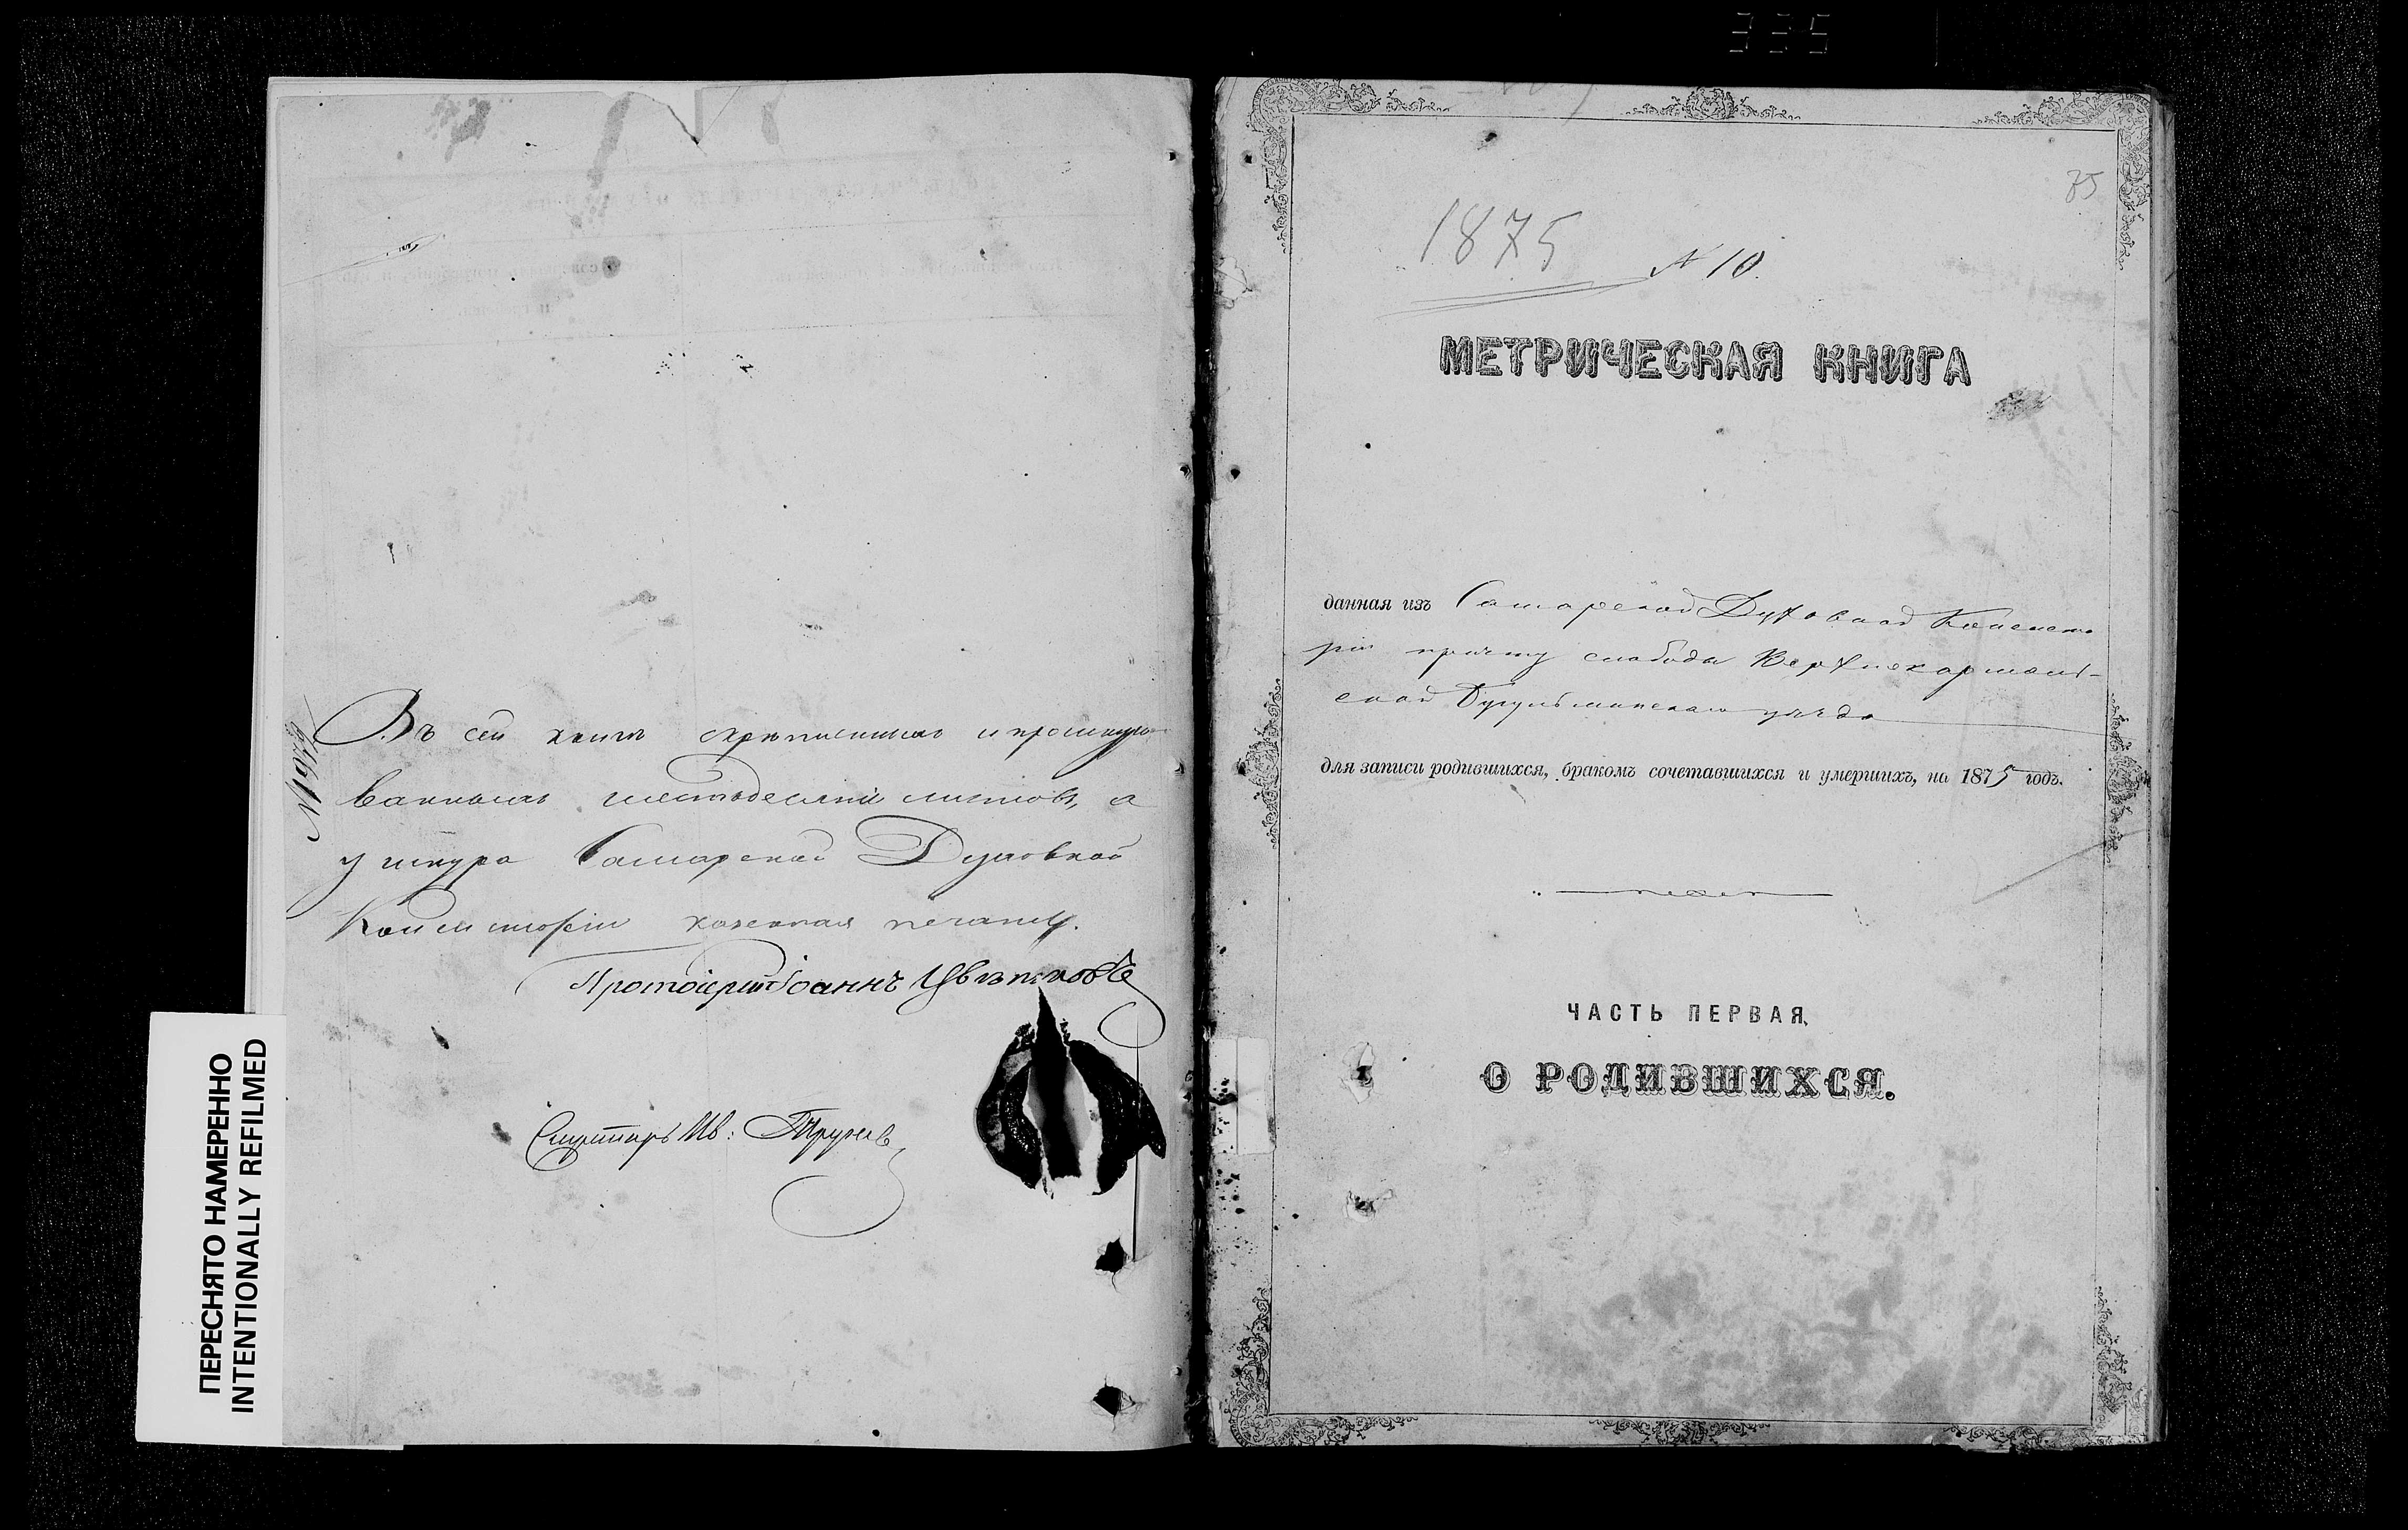 335
№ 1697
Въ сей книгѣ скрѣпленныхъ и прошнуро-
ванныхъ шестьдесятъ листовъ, а
у шнура Самарской Духовной
Консисторіи казенная печать.
Протоіерей Іоаннъ Цвѣтковъ
Секретарь Ив:
ПЕРЕСНЯТО НАМЕРЕННО
INTENTIONALLY REFILMED
1875
№ 10.
МЕТРИЧЕСКАЯ КНИГА
данная изъ Самарской Духовной Консисто
ріи причту слободы Верхнекармаль-
ской Бугульминскаго уѣзда
для записи родившихся, бракомъ сочетавшихся и умершихъ, на 1875 годъ.
ЧАСТЬ ПЕРВАЯ,
О РОДИВШИХСЯ.